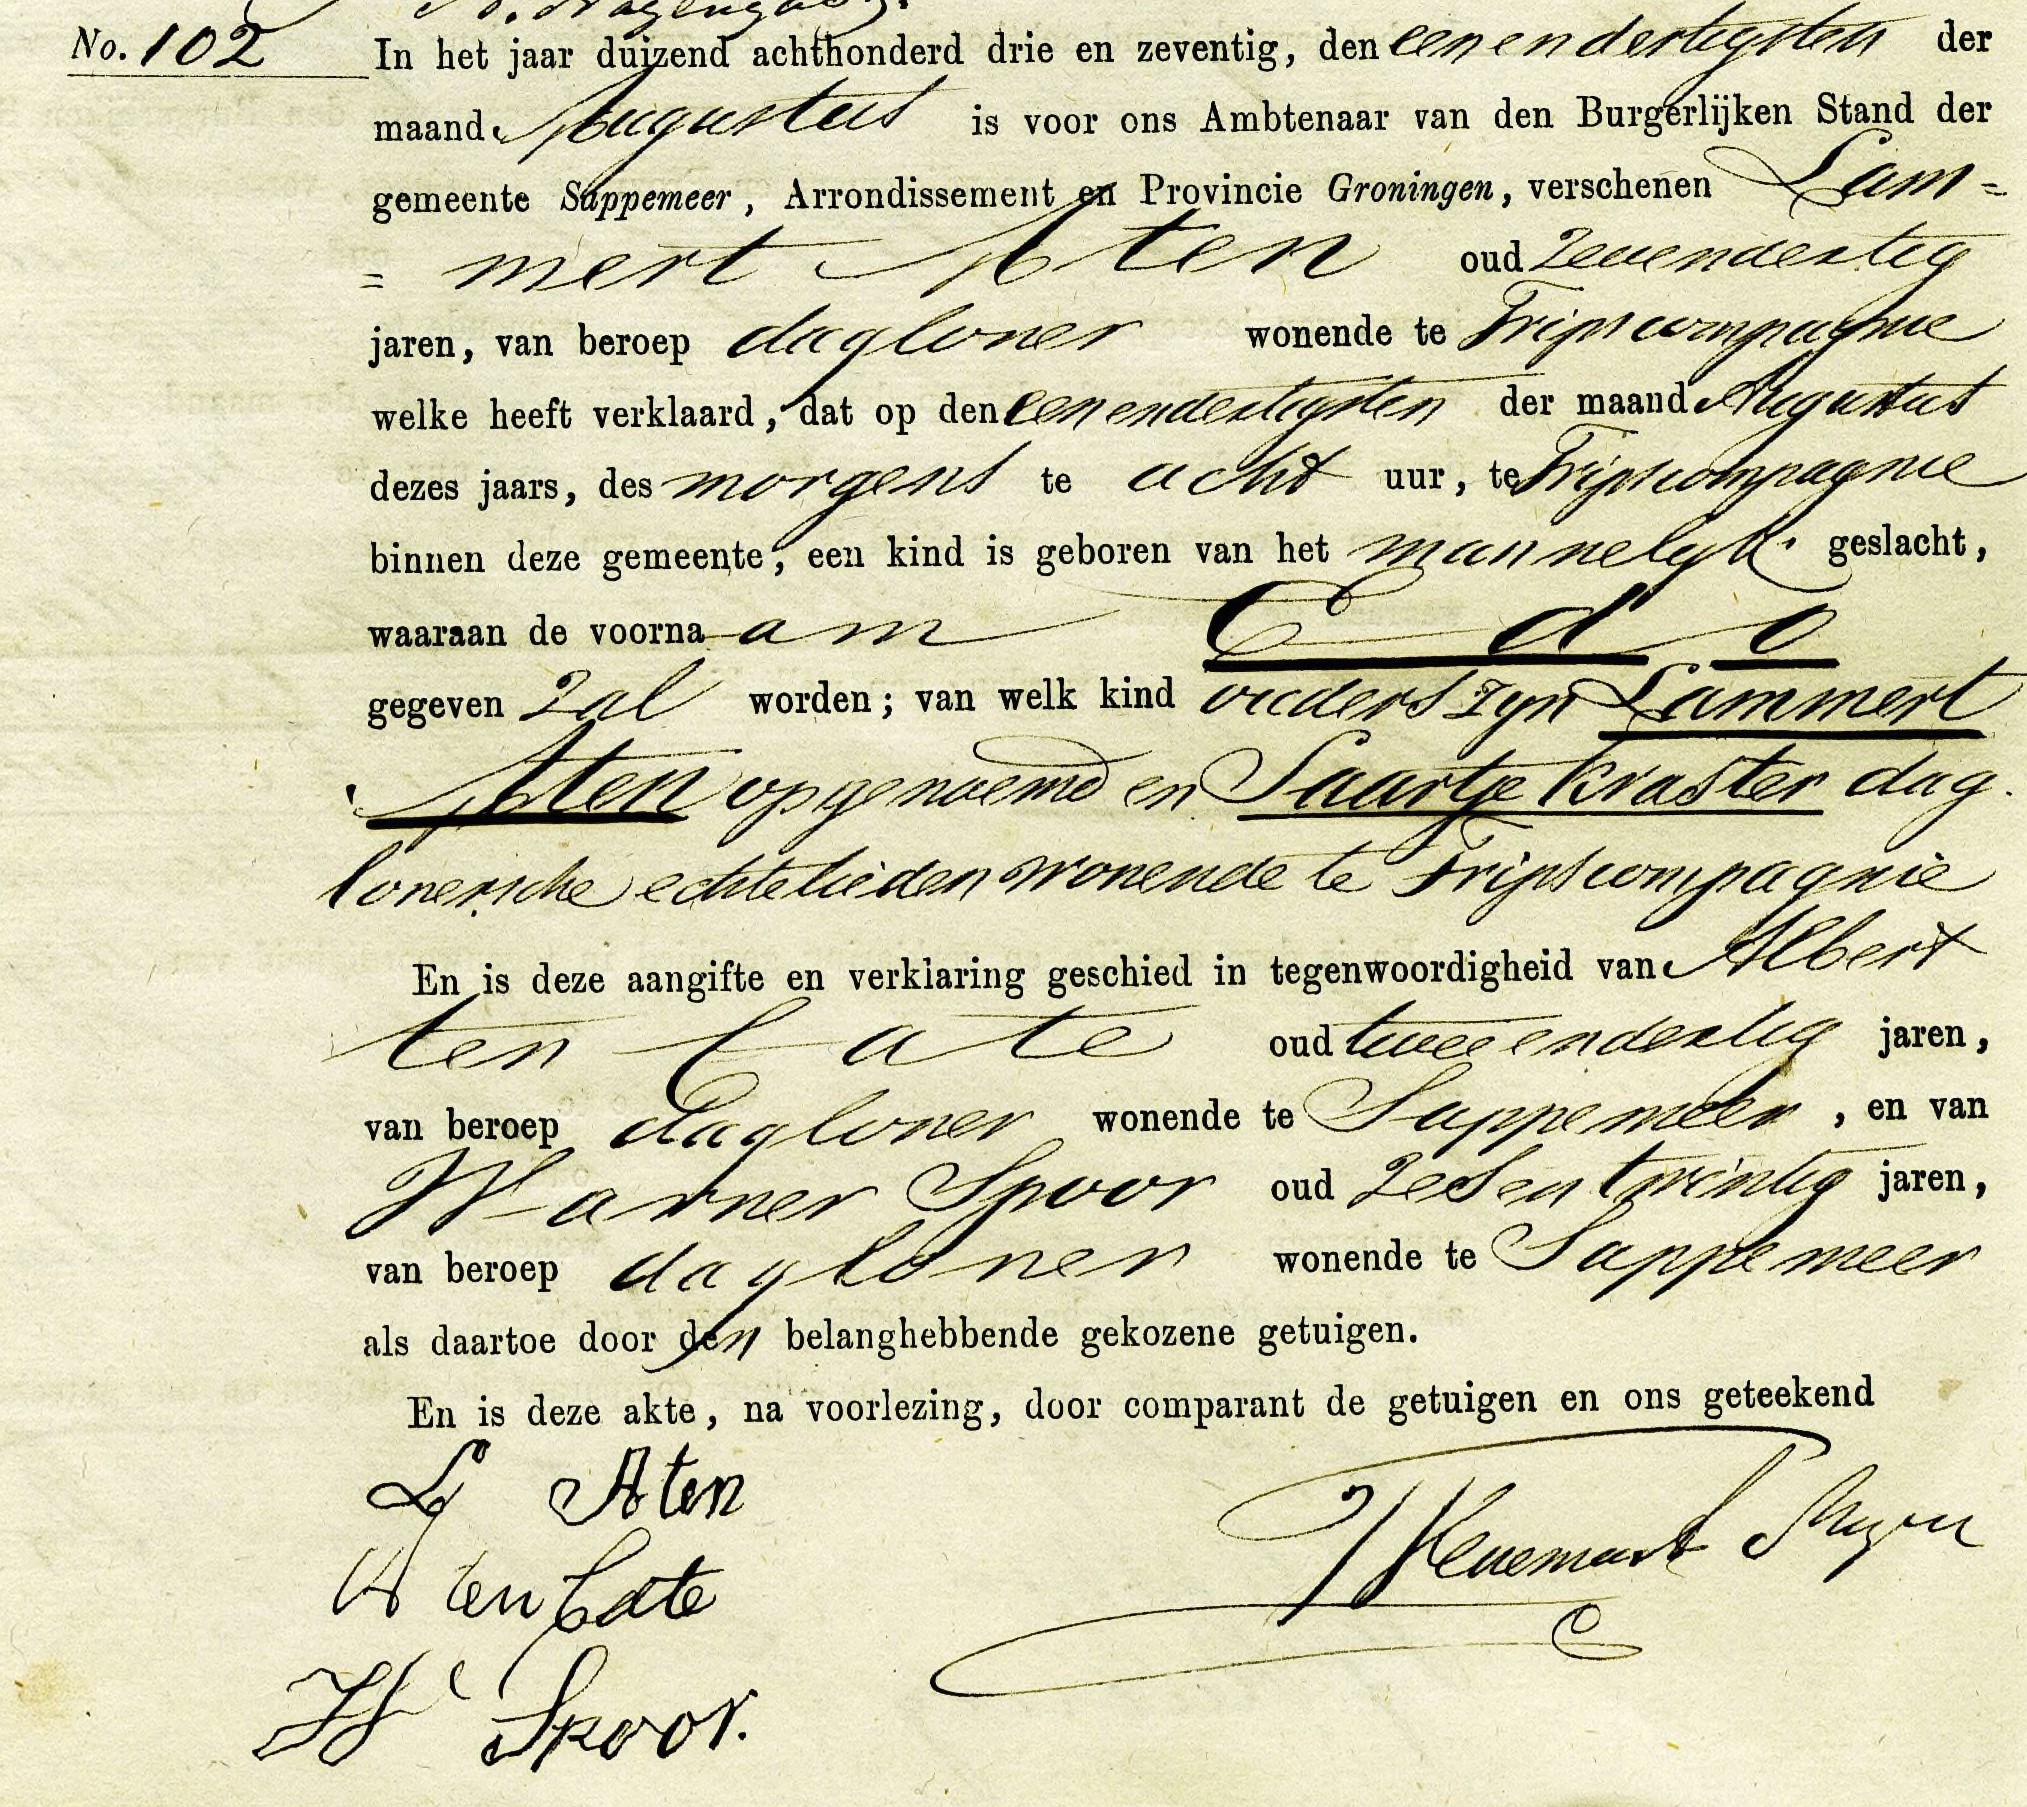 No. 102
In het jaar duizend achthonderd drie en zeventig, den een en dertigsten der
maand Augustus is voor ons Ambtenaar van den Burgerlijken Stand der
gemeente Sappemeer, Arrondissement en Provincie Groningen, verschenen Lam=
= mert Aten oud Zevendertig
jaren, van beroep dagloner wonende te Tripscompagnie
welke heeft verklaard, dat op den een endertigsten der maand Augustus
dezes jaars, des morgens te acht uur, te Tripscompagnie
binnen deze gemeente, een kind is geboren van het mannelyk geslacht,
waaraan de voornaam Edo
gegeven zal worden; van welk kind ouders zyn Lammert
Aten opgenoemd en Saartje Kraster dag.
lonersche echtelieden wonende te Tripscompagnie
En is deze aangifte en verklaring geschied in tegenwoordigheid van Albert
ten Cate oud tweeendertig jaren,
van beroep dagloner wonende te Sappemeer, en van
Warner Spoor oud zesentwintig jaren,
van beroep dagloner wonende te Sappemeer
als daartoe door den belanghebbende gekozene getuigen.
En is deze akte, na voorlezing, door comparant de getuigen en ons geteekend
L Aten
A ten Cate
W Spoor.